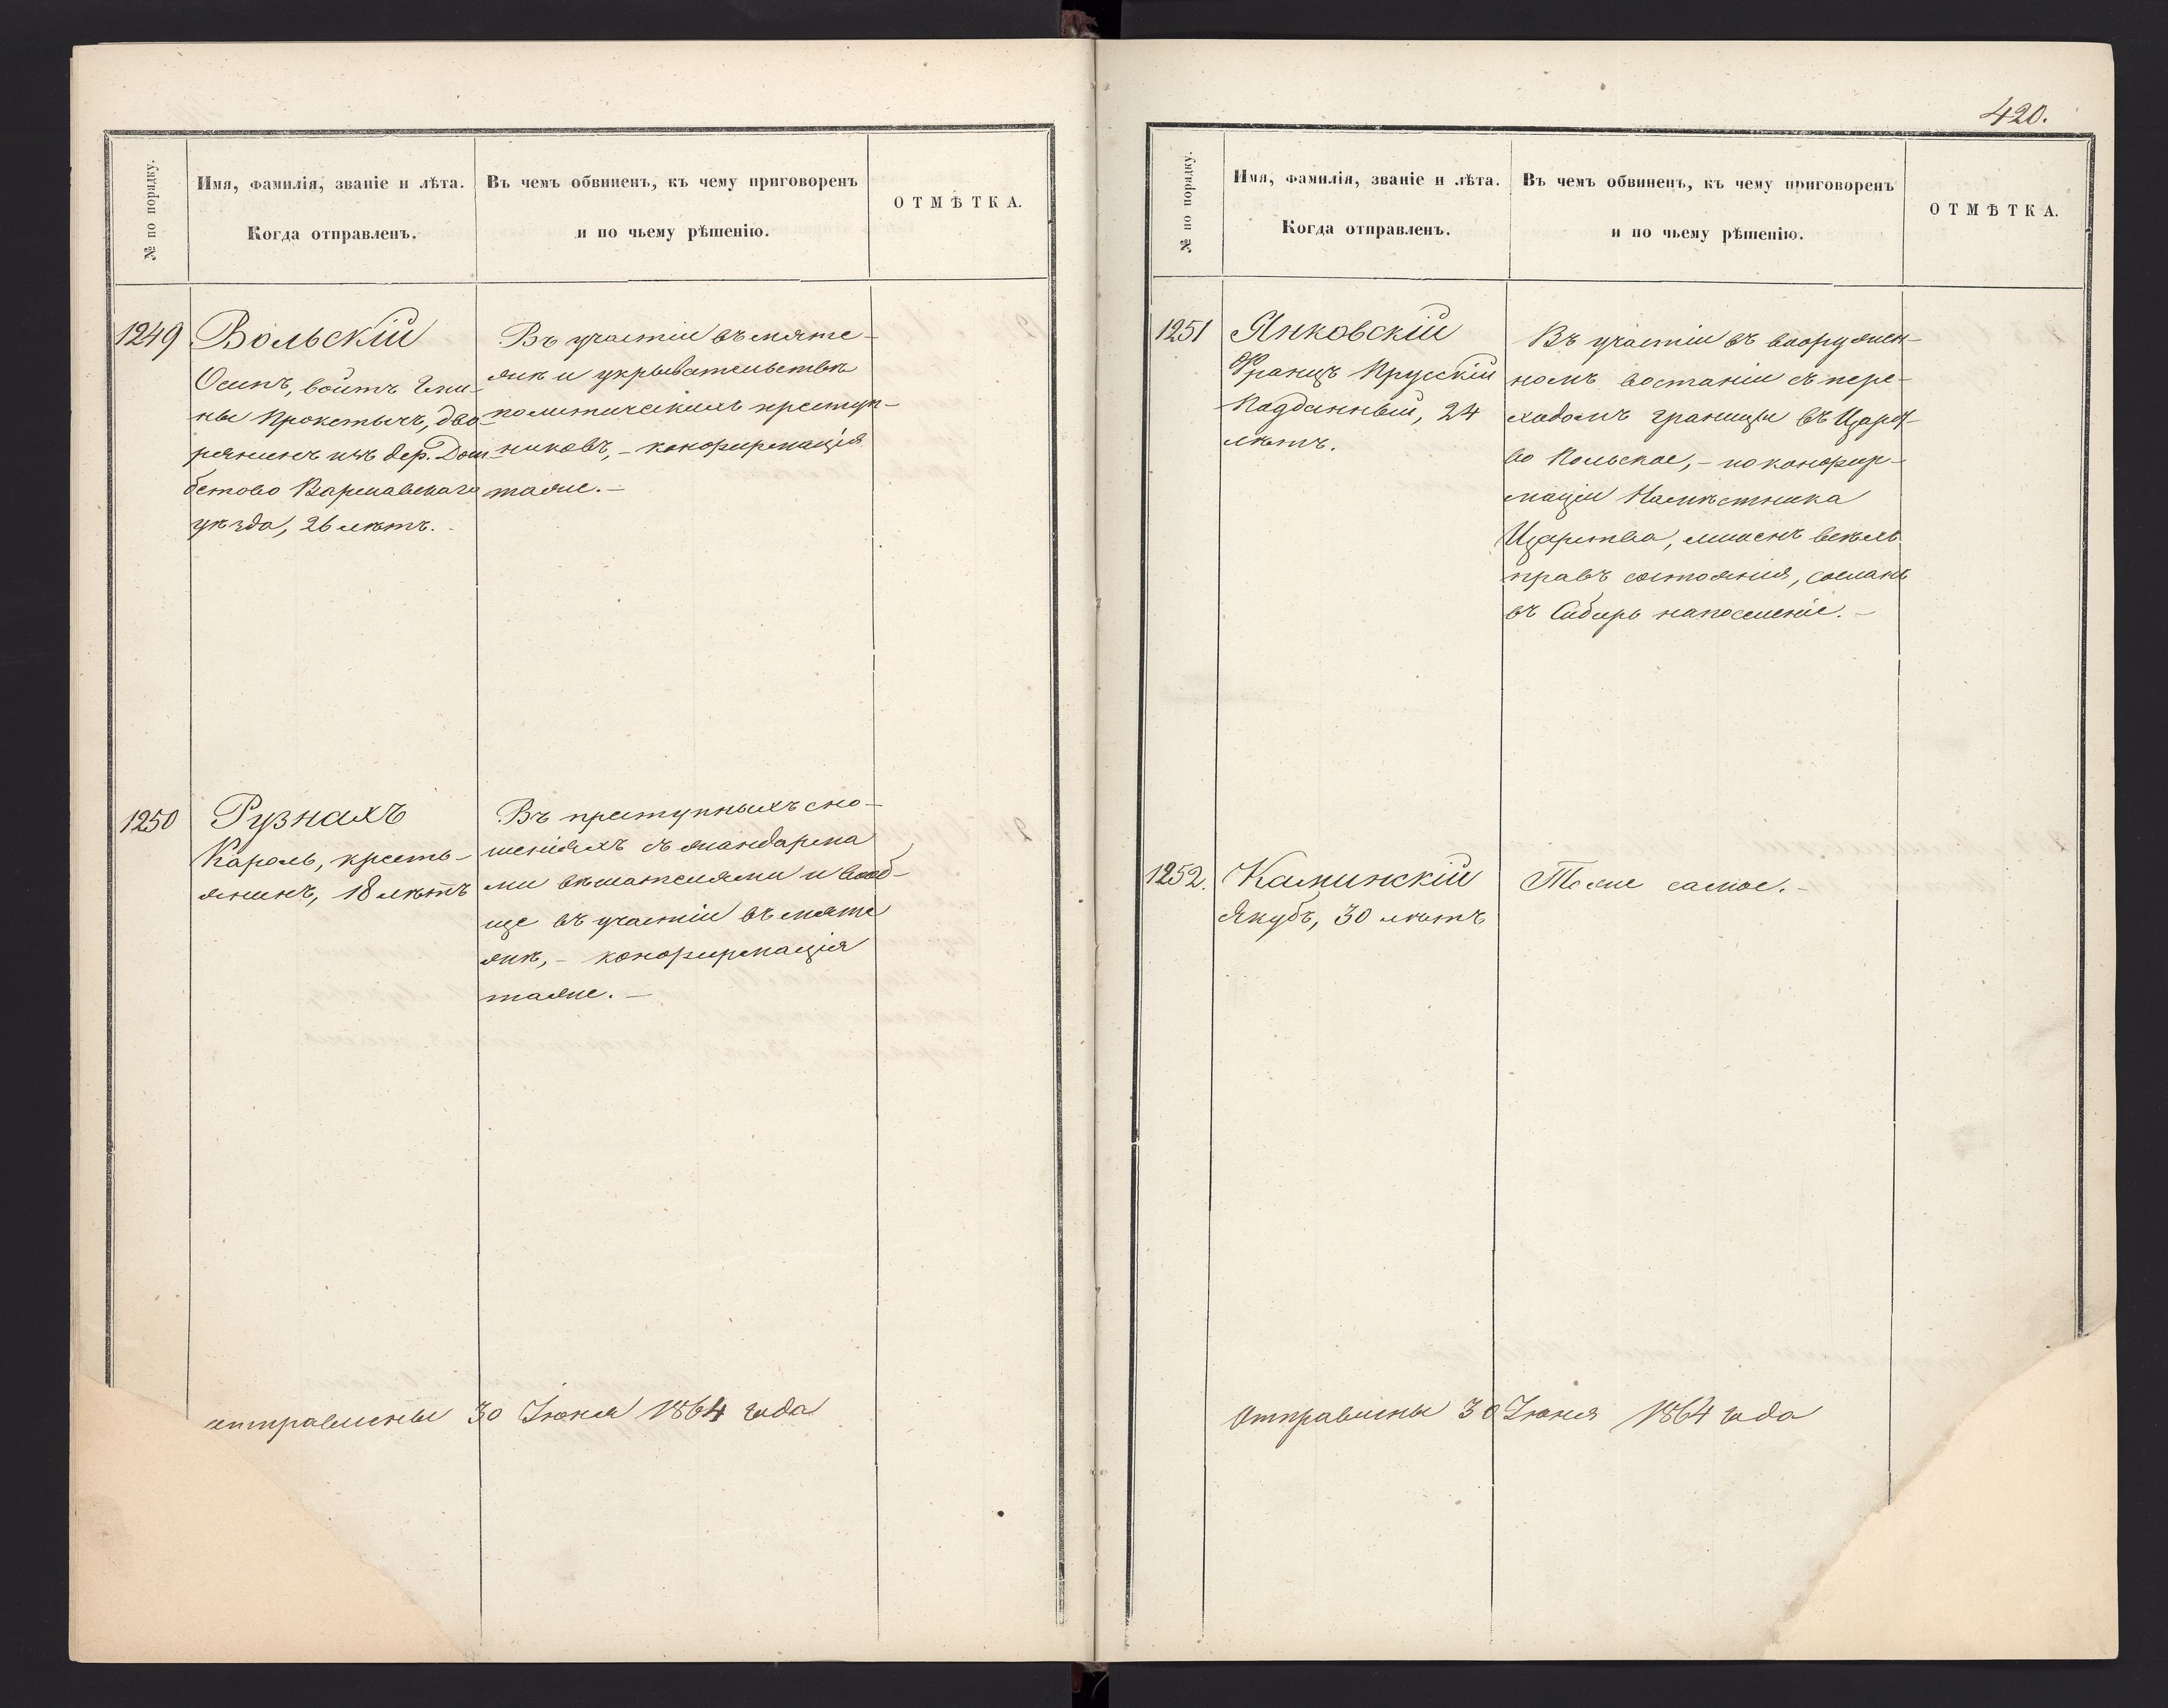 № по порядку.
Имя, фамилія, званіе и лѣта.
Когда отправленъ.
Въ чемъ обвиненъ, къ чему приговоренъ
и по чьему рѣшенію.
ОТМѢТКА.
1249
Вольскій
Осипъ, войтъ Гми-
ны
дво-
рянинъ изъ дер.
Варшавскаго
уѣзда, 26 лѣтъ.
Въ участіи въ мяте-
жѣ и укрывательствѣ
политическихъ преступ-
никовъ, – конфирмація
таже. –
1250
Рузнахъ
Кароль, кресть-
янинъ, 18 лѣтъ
Въ преступныхъ сно-
шеніяхъ съ жандарма
ми вѣшателями и вооб-
ще въ участіи въ мяте
жѣ, – конфирмація
таже. –
отправлены 30 Іюня 1864 года
420.
№ по порядку.
Имя, фамилія, званіе и лѣта.
Когда отправленъ.
Въ чемъ обвиненъ, къ чему приговоренъ
и по чьему рѣшенію.
ОТМѢТКА.
1251
Янковскій
Францъ Прусскій
Подданный, 24
лѣтъ.
Въ участіи въ вооружен-
номъ востаніи съ пере-
ходомъ границы въ Царст-
во Польское, – по конфир-
маціи Намѣстника
Царства, лишенъ всѣхъ
правъ состоянія, сосланъ
въ Сибирь на поселеніе. –
1252.
Каминскій
Якубъ, 30 лѣтъ
Тоже самое. –
Отправлены 30 Іюня 1864 года